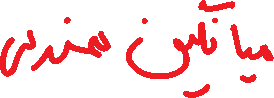 میانگین هندسی